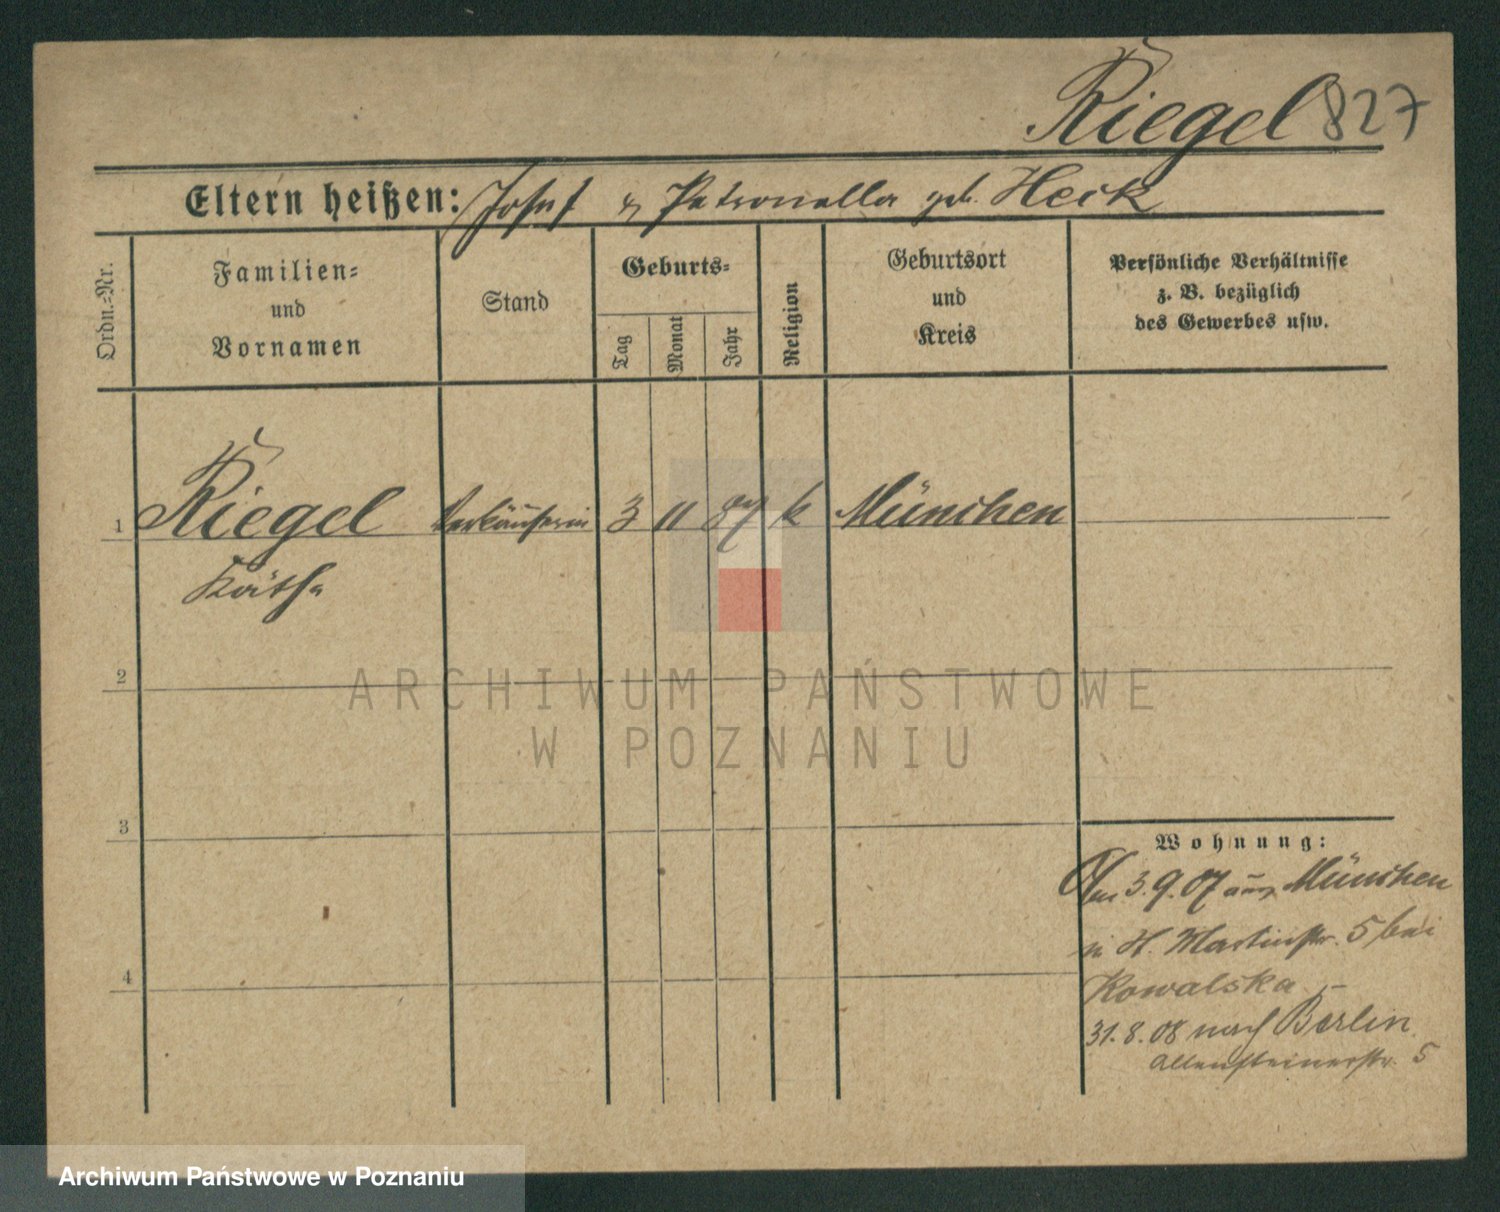 Riegel 827
Eltern heißen: Josef & Petronella geb. Heck
Ordn.-Nr.
Familien-
und
Vornamen
Stand
Geburts-
Tag
Monat
Jahr
Religion
Geburtsort
und
Kreis
Persönliche Verhältnisse
z. B. bezüglich
des Gewerbes usw.
1 Riegel Verkäuferin 3 11 87 k München
Käthe
2
ARCHIWUM PAŃSTWOWE
W POZNANIU
3
Wohnung:
3.9.07 aus München
in H. Martinstr. 5 bei
Kowalska
4
31.8.08 nach Berlin
Allensteinerstr. 5
Archiwum Państwowe w Poznaniu